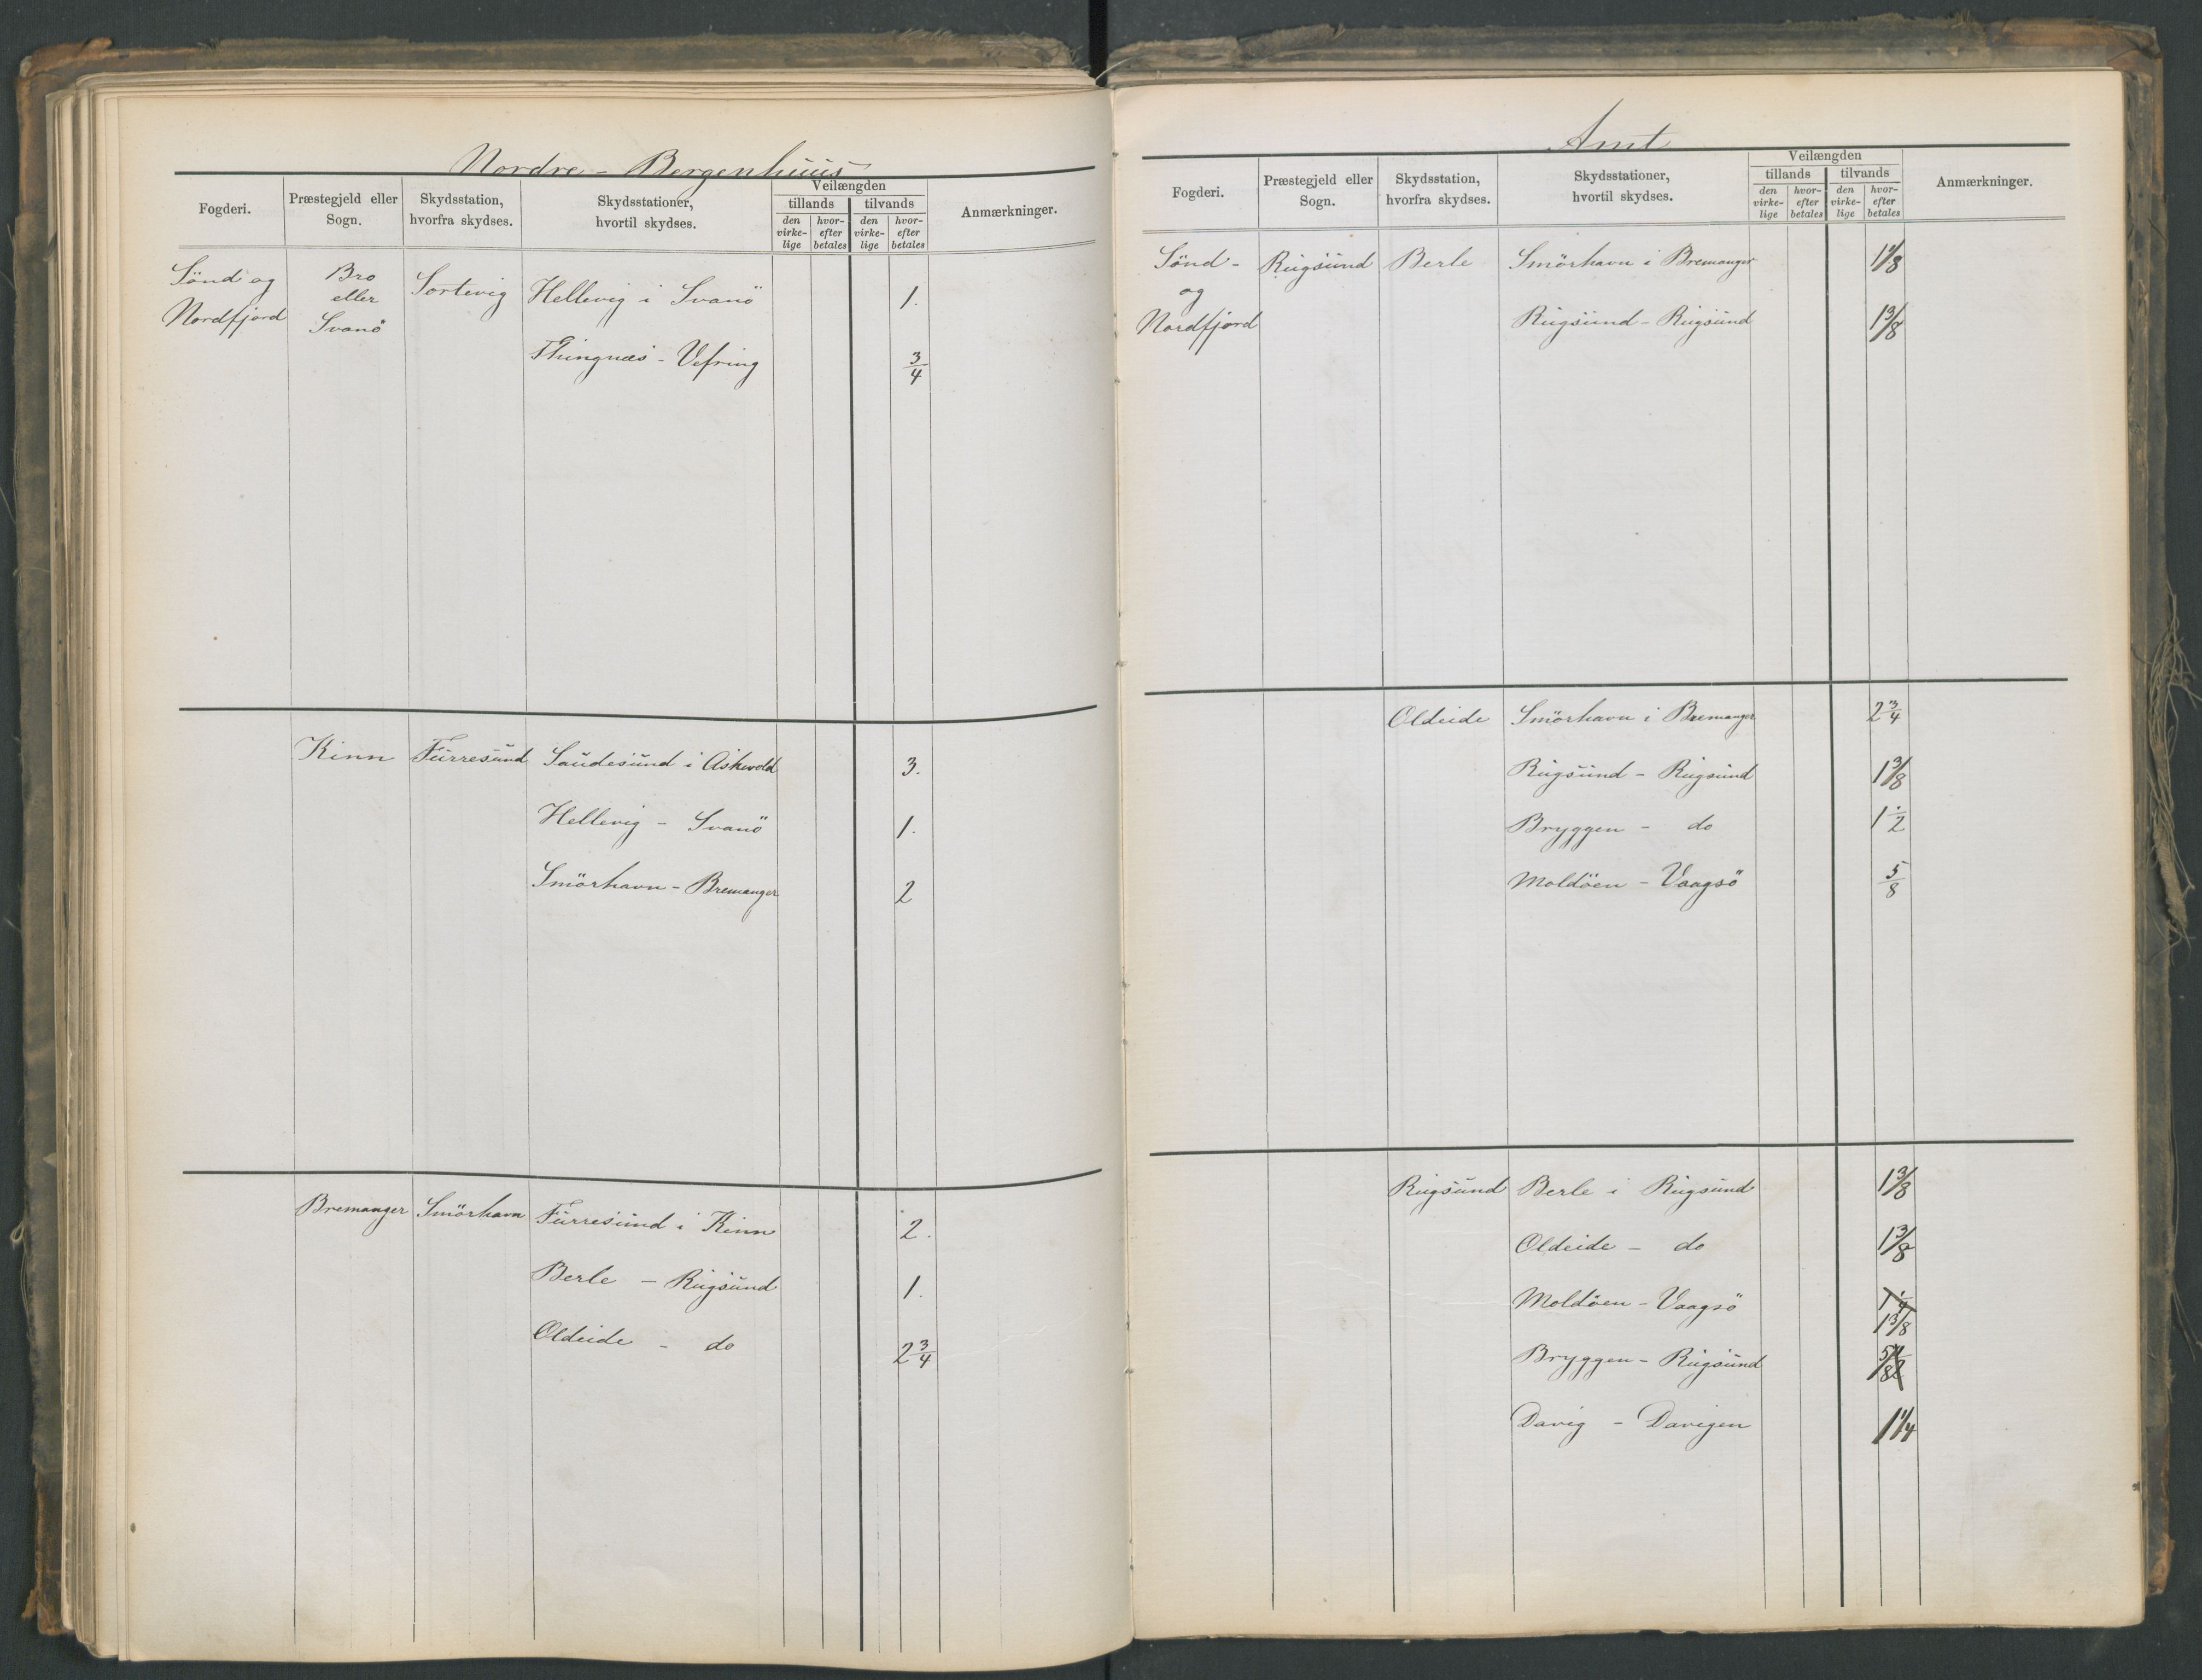 Nordre - Bergenhuus
Fogderi. Præstegjeld eller Sogn. Skydsstation, hvorfra skydses. Skydsstationer, hvortil skydses. Veilængden tillands tilvands den virke-lige hvor-efter betales den virke-lige hvor-efter betales Anmærkninger.
Sönd og Bro Sortevig Hellevig i Svanö 1.
eller
Nordfjord Svanö
Thingnæs - Vefring 3/4
Kinn Furresund Saudesund i Askevold 3.
Hellevig - Svanö 1.
Smörhavn - Bremanger 2
Bremanger Smörhavn Furresund i Kinn 2.
Berle - Rugsund 1.
Oldeide - do 2 3/4
Amt
Fogderi. Præstegjeld eller Sogn. Skydsstation, hvorfra skydses. Skydsstationer, hvortil skydses. Veilængden tillands tilvands den virke-lige hvor-efter betales den virke-lige hvor-efter betales Anmærkninger.
Sönd - Rugsund Berle Smörhavn i Bremanger 1 1/8
og
Nordfjord Rugsund - Rugsund 1 3/8
Oldeide Smörhavn i Bremanger 2 3/4
Rugsund - Rugsund 1 3/8
Bryggen - do 1 1/2
Moldöen - Vaagsö 5/8
Rugsund Berle i Rugsund 1 3/8
Oldeide - do 1 3/8
Moldöen - Vaagsö 1 1/4
1 3/8
Bryggen - Rugsund 5/8
Davig - Davigen 1 1/4